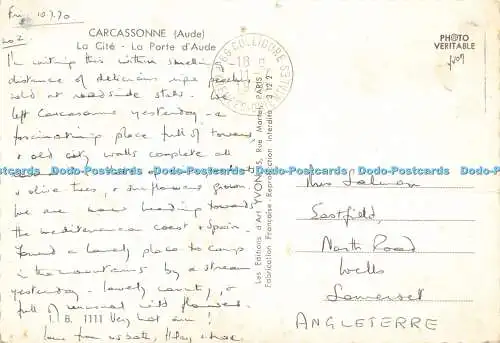 Fri. 10.7.70
CARCASSONNE (Aude)
La Cité - La Porte d'Aude
I'm writing this within smelling
distance of delicious ripe peaches
sold at roadside stalls. We
left Carcassonne yesterday - a
fascinating place full of towers
& old city walls complete all
& olive trees, & sunflowers grown.
We are now heading towards
the mediterranean coast & Spain.
Found a lovely place to camp
in the mountains by a stream
yesterday - lovely country, &
full of unusual wild flowers.
T. B. 1111 Very hot now!
Love from us both,
66 COLLIOURE
18 H
11
PYRENEES-ORIENTALES
PHOTO
VERITABLE
yvon
Les Editions d'Art YVON, 15, Rue Martel, PARIS
Fabrication Française - Reproduction interdite 3 122
Dodo-Postcards Dodo-Postcards Dodo-Postcards Dodo-Postcards Dodo-Postcards Dodo-Postcards
Miss Salmon
Eastfield,
North Road
Wells
Somerset
ANGLETERRE